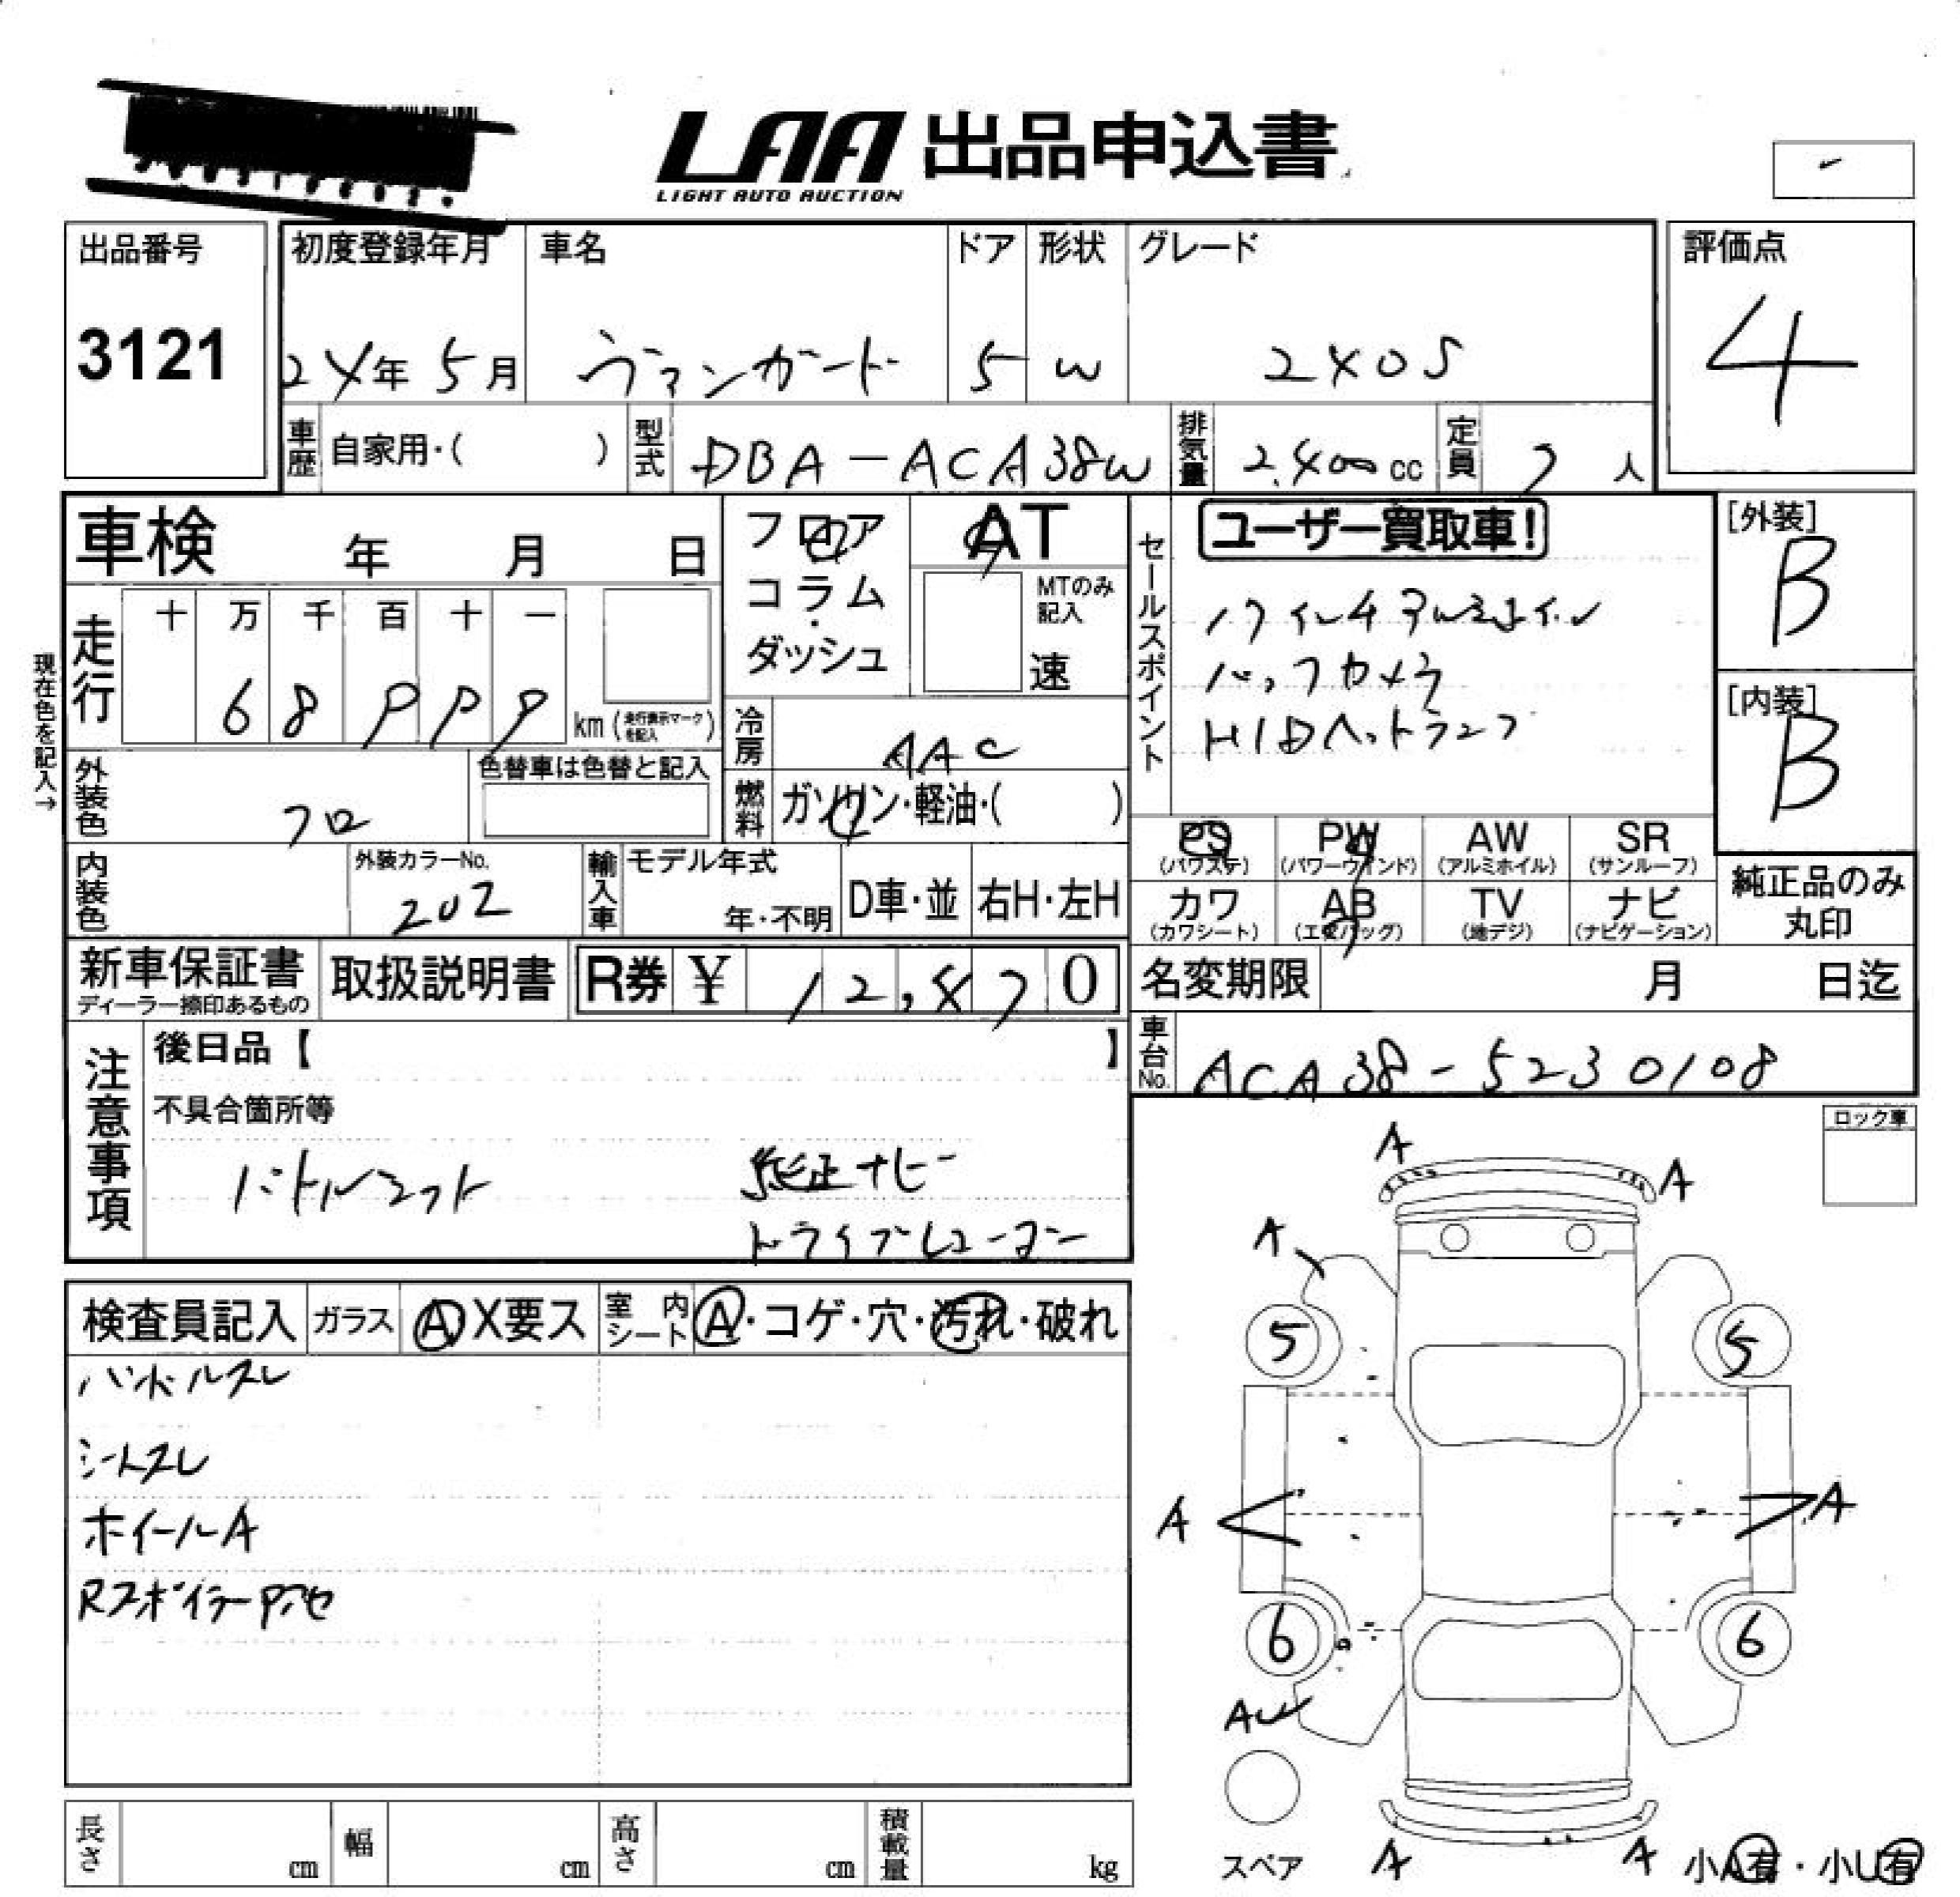 LAA 出品申込書
LIGHT AUTO AUCTION
出品番号
3121
初度登録年月
24年 5月
車名
ヴァンガード
ドア
5
形状
W
グレード
240S
評価点
4
車歴 自家用・( )
型式 DBA-ACA38W
排気量 2,400cc
定員 7人
車検 年 月 日
フロア
コラム
・
ダッシュ
AT
MTのみ
記入
速
セールスポイント
ユーザー買取車!
17インチアルミホイル
バックカメラ
HIDヘットランプ
[外装]
B
[内装]
B
現在色を記入→
走行
十 万 千 百 十 一
6 8 9 9 9
km (走行表示マークを記入)
冷房 AAC
外装色 クロ
色替車は色替と記入
燃料 ガソリン・軽油・( )
PS (パワステ)
PW (パワーウインド)
AW (アルミホイル)
SR (サンルーフ)
カワ (カワシート)
AB (エアバッグ)
TV (地デジ)
ナビ (ナビゲーション)
純正品のみ
丸印
内装色
外装カラーNo.
202
輸入車
モデル年式
年・不明
D車・並
右H・左H
新車保証書
ディーラー捺印あるもの
取扱説明書
R券 ¥ 12,870
名変期限 月 日迄
車台No. ACA38-5230108
注意事項
後日品【 】
不具合箇所等
純正ナビ
ロック車
検査員記入
ガラス A X要ス
室内シート A・コゲ・穴・汚れ・破れ
ハンドルスレ
シートスレ
ホイールA
A
A
A
5
5
A
A
6
6
スペア
A
A
小A有・小U有
長さ cm
幅 cm
高さ cm
積載量 kg